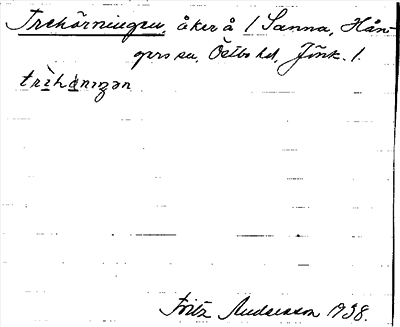 Trehörningen, åker å 1 Sanna, Hån-
gers sn, Östbo hd, Jönk. l.
trìhä̀nıŋən
Fritz Andersson 1938.